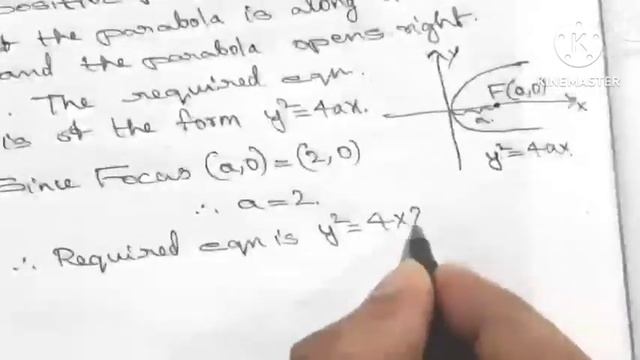 the parabola is along
and the parabola opens right.
. The required eqn.
is of the form y²=4ax.
Since Focus (a,0)=(2,0)
∴ a=2.
∴ Required eqn is y²=4×2
Y
F(a,0)
a
x
y²=4ax
K
KINEMASTER